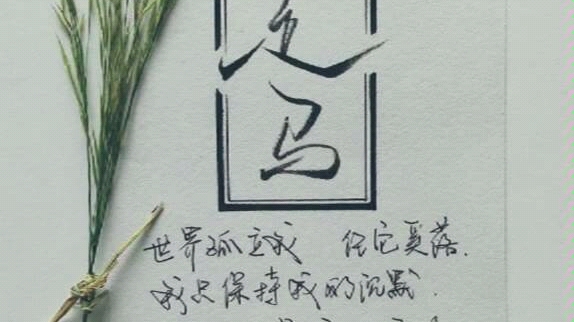 走
马
世界孤立我 任它奚落.
我只保持我的沉默.